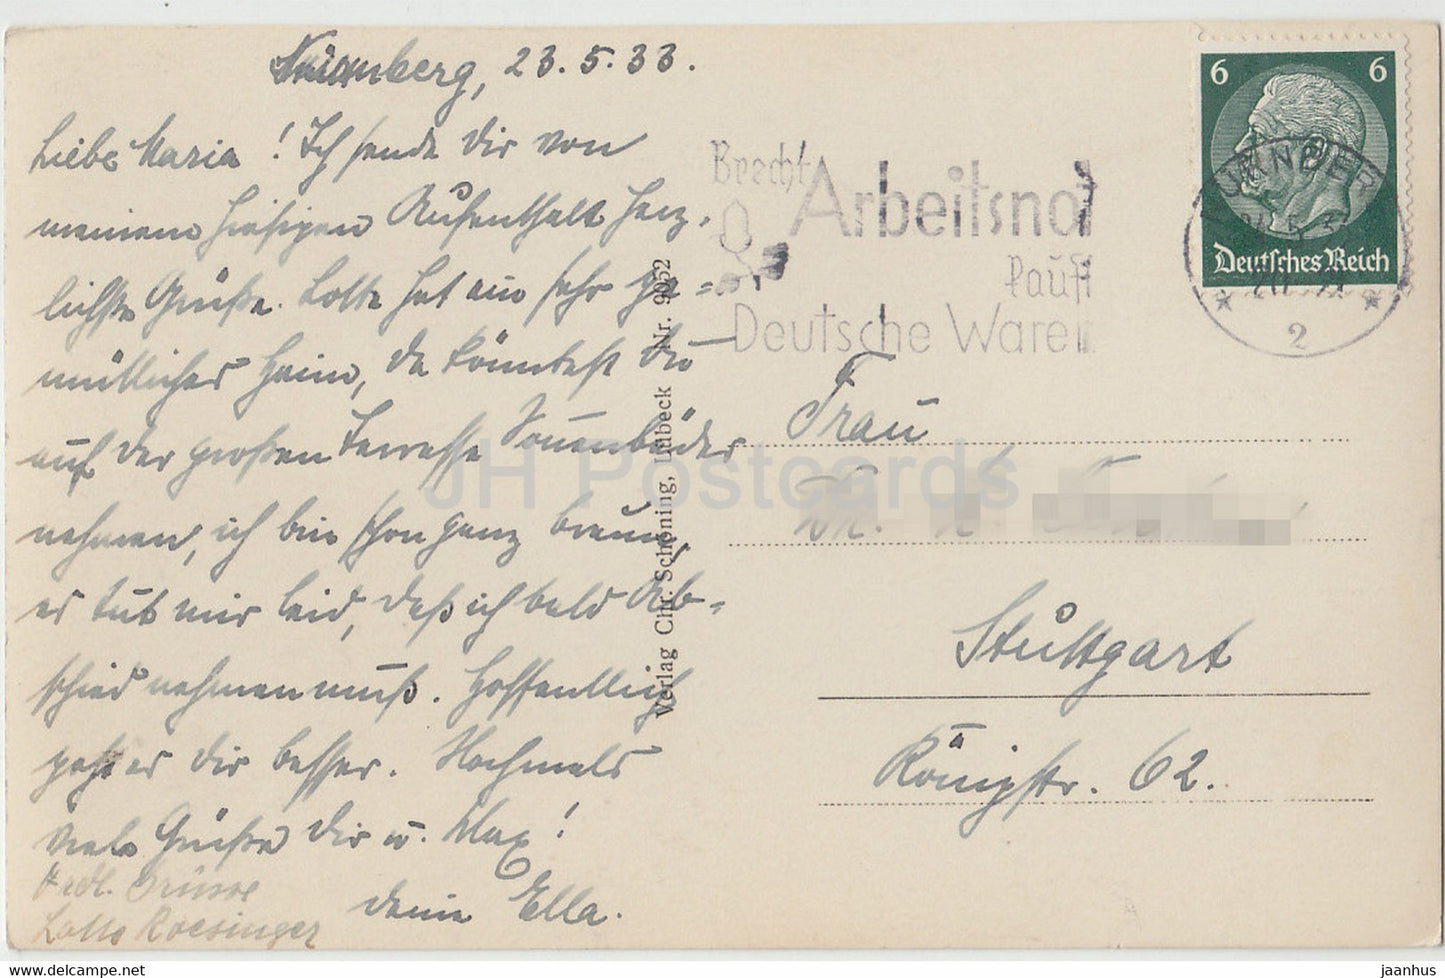 Nürnberg, 23.5.33.
Liebe Maria! Ich sende Dir von
meinem hiesigen Aufenthalt herz-
lichste Grüße. Lotte hat ein sehr ge=
mütliches Heim, da könntest Du
auf der großen Terrasse Sonnenbäder
nehmen, ich bin schon ganz braun,
es tut mir leid, daß ich bald Ab=
schied nehmen muß. Hoffentlich
geht es Dir besser. Nochmals
viele Grüße Dir u. Max!
deine Ella.
Hrdl. Grüsse
Lotte Roesinger
Verlag Chr. Schöning, Lübeck Nr. 9052
Brecht
Arbeitsno
kauft
Deutsche Waren
6 6
Deutsches Reich
2
Frau
Stuttgart
Königstr. 62.
JH Postcards
jaanhus